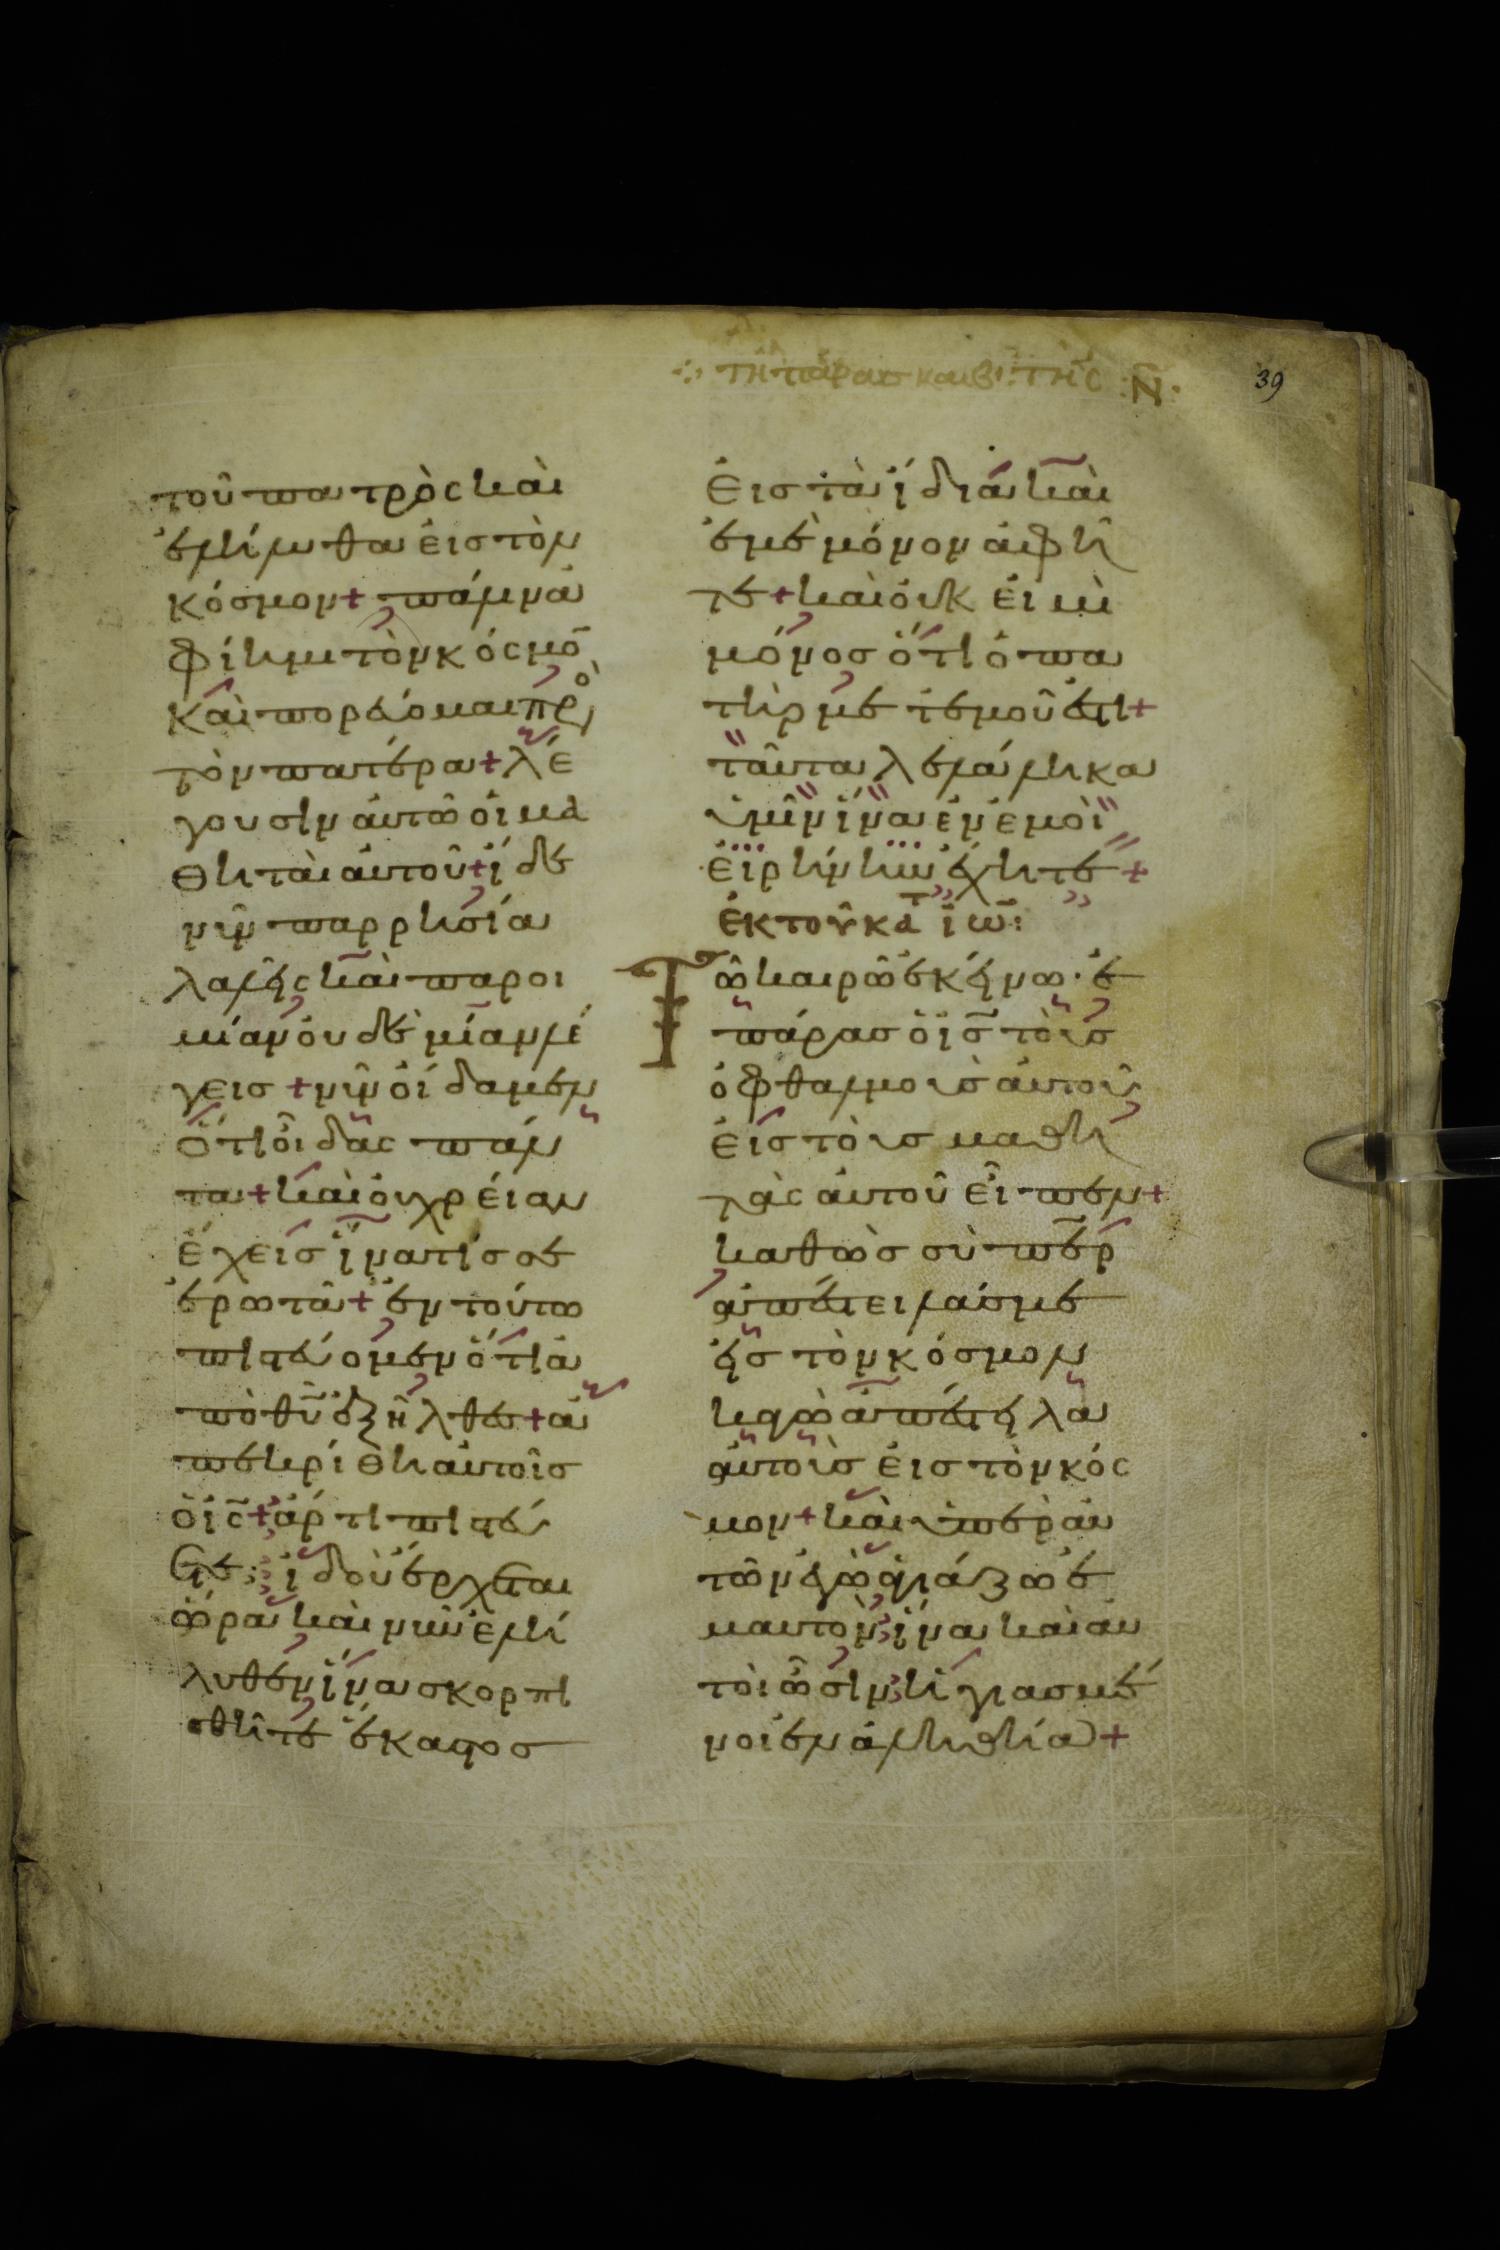 τῆ παρασκευῆ τῆς Ν
39
τοῦ πατρὸς καὶ
ἐλήλυθα εἰς τὸν
κόσμον + πάλιν ἀ
φίημι τὸν κόσμο̅
καὶ πορεύομαι πρὸ
τὸν πατέρα + λέ
γουσιν αὐτῶ οἱ μα
θηταὶ αὐτοῦ + ἴδε
νῦν παρρησία
λαλεῖς καὶ παροι
μίαν οὐδὲ μίαν λέ
γεις + νῦν οἴδαμεν
ὅτι οἶδας πάν
τα + καὶ οὐ χρείαν
ἔχεις ἵνα τίς σε
ἐρωτᾶ + ἐν τούτω
πιστεύομεν ὅτι ἀ
πὸ θυ̅ ἐξῆλθες + ἀ
πεκρίθη αὐτοῖς
ὁ ις̅ + ἄρτι πιστεύ
ετε ; ἰδοὺ ἔρχεται
ὥρα καὶ νῦν ἐλή
λυθεν ἵνα σκορπι
σθῆτε ἕκαστος
εἰς τὰ ἴδια καὶ
ἐμὲ μόνον ἀφῆ
τε + καὶ οὐκ εἰμὶ
μόνος ὅτι ὁ πα
τὴρ μετ ἐμοῦ ἐστι +
ταῦτα λελάληκα
ὑμῖν ἵνα ἐν ἐμοὶ
εἰρήνην ἔχητε +
ἐκ τοῦ κατ ἰω̅ :
Τῶ καιρῶ ἐκείνω · ἐ
πάρας ὁ ις̅ τοὺς
ὀφθαλμοὺς αὐτοῦ
εἰς τοὺς μαθη
τὰς αὐτοῦ εἶπεν +
καθὼς σὺ πε̅ρ
ἀπέστειλάς με
εἰς τὸν κόσμον
κἀγὼ ἀπέστειλα
αὐτοὺς εἰς τὸν κόσ
μον + καὶ ὑπὲρ αὐ
τῶν ἐγὼ ἁγιάζω ἐ
μαυτὸν ἵνα καὶ αὐ
τοὶ ὦσιν ἡγιασμέ
νοι ἐν ἀληθεία +